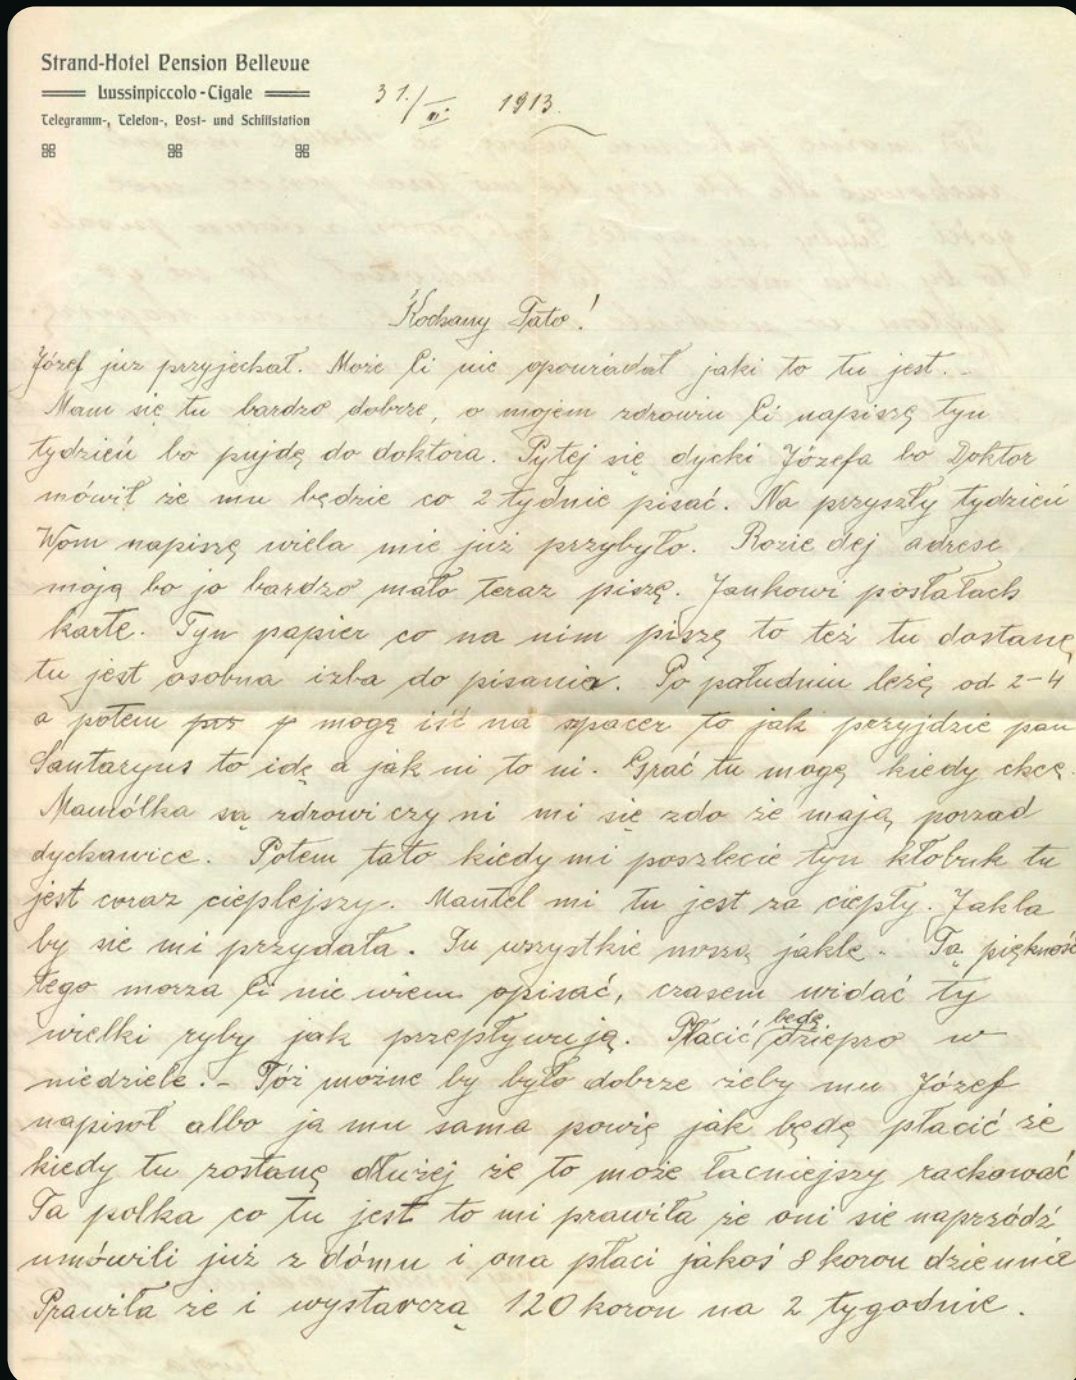 Strand-Hotel Pension Bellevue
Lussinpiccolo-Cigale
Telegramm-, Telefon-, Post- und Schiffstation
31./ 1913.
Kochany Tato!
Józef juz przyjechał. Może Ci nie opowiadał jaki to tu jest. -
Mam się tu bardzo dobrze, o mojem zdrowiu Ci napiszę tyn
tydzień bo pujdę do doktora. Pytej się dycki Józefa bo Doktor
mówił że mu będzie co 2 tydnie pisać. Na przyszły tydzień
Wom napiszę wiela mie już przybyło. Rozie dej adrese
moją bo jo bardzo mało teraz piszę. Jankowi posłałach
karte. Tyn papier co na nim piszę to też tu dostanę,
tu jest osobna izba do pisania. Po południu leżę od 2-4
a potem mogę iść na spacer to jak przyjdzie pan
Santaryus to idę a jak ni to ni. Grać tu mogę kiedy chcę.
Mamólka są zdrowi czy ni mi się zdo że mają porzad
dychawice. Potem tato kiedy mi poszlecie tyn kłobuk tu
jest coraz cieplejszy. Mantel mi tu jest za ciepły. Jakla
by sie mi przydała. Tu wszystkie noszą jakle. Tą piękność
tego morza Ci nie wiem opisać, czasem widać ty
wielki ryby jak przepływują. Płacić będę dziepro w
niedziele. - Tóż możne by było dobrze żeby mu Józef
napisoł albo ja mu sama powię jak będę płacić że
kiedy tu zostanę dłużej że to może łacniejszy rachować
Ta polka co tu jest to mi prawiła że oni sie naprzódź
umówili już z dómu i ona płaci jakoś 8 koron dziennie
Prawiła że i wystarczą 120 koron na 2 tygodnie.